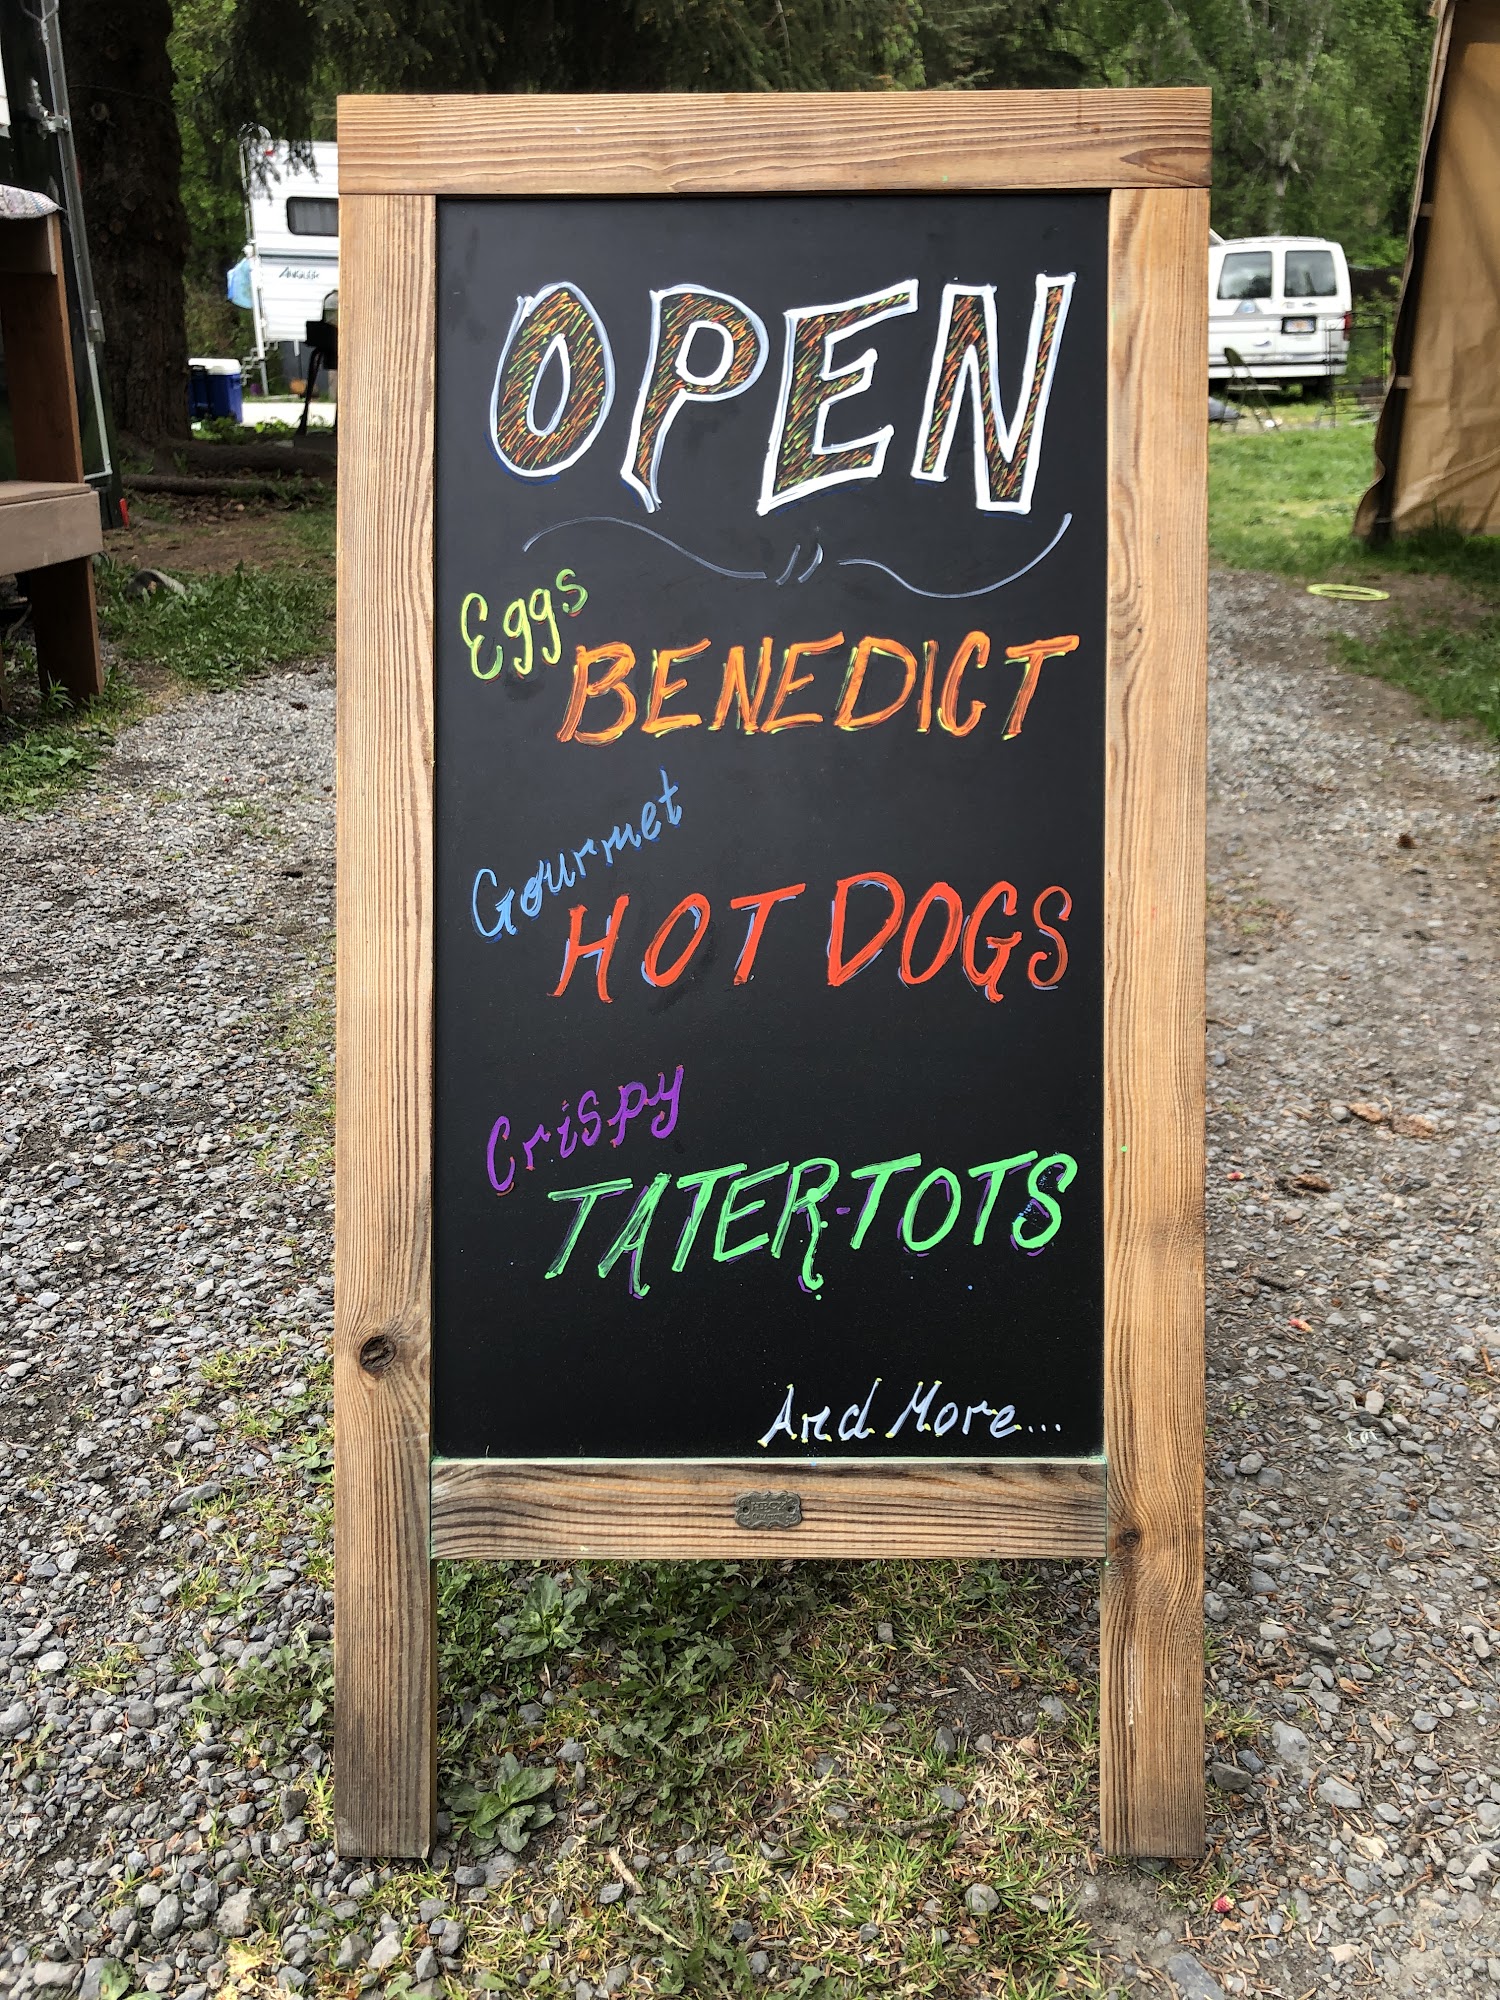 OPEN
Eggs
BENEDICT
Gourmet
HOT DOGS
Crispy
TATER-TOTS
And More...
ANGLER